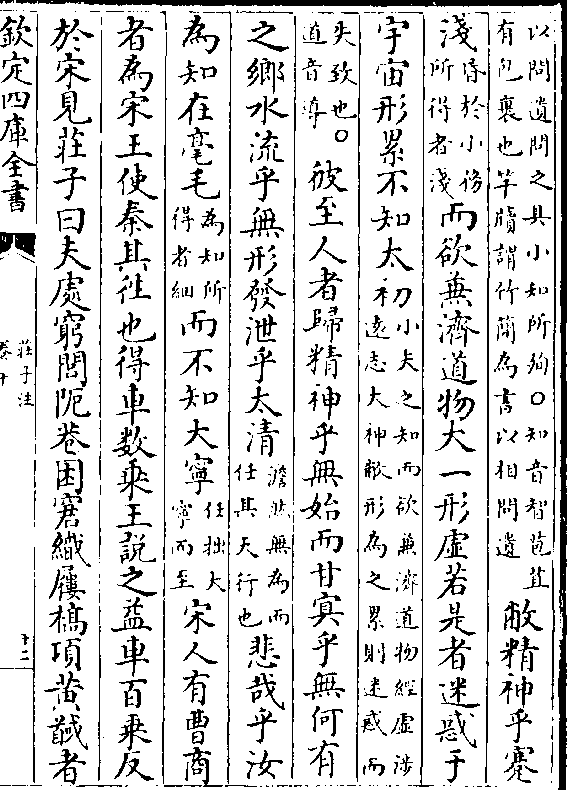 以問遺問之具小知所殉〇知音智苞苴
有包裹也竿牘謂竹簡為書以相問遺
敝精神乎蹇
淺
昏於小務
所得者淺
而欲兼濟道物太一形虛若是者迷惑于
宇宙形累不知太初
小夫之知而欲兼濟道物經虛涉
遠志大神敝形為之累則迷惑而
失致也〇
道音導
彼至人者歸精神乎無始而甘冥乎無何有
之鄉水流乎無形發泄乎太清
澹然無為而
任其天行也
悲哉乎汝
為知在毫毛
為知所
得者細
而不知大寧
任拙大
寧而至
宋人有曹商
者為宋王使秦其徃也得車数乘王説之益車百乘反
於宋見莊子曰夫處窮閭阨巷困窘織屨槁項黃馘者
欽定四庫全書
莊子注
卷十
十二